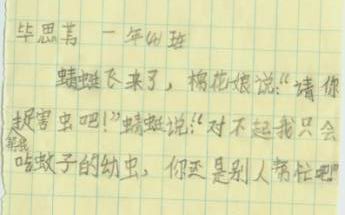 毕思菁 一年(4)班
蜻蜓飞来了，棉花娘说:“请你
捉害虫吧！”蜻蜓说:“对不起我只会
吃蚊子的幼虫，你还是别人帮忙吧